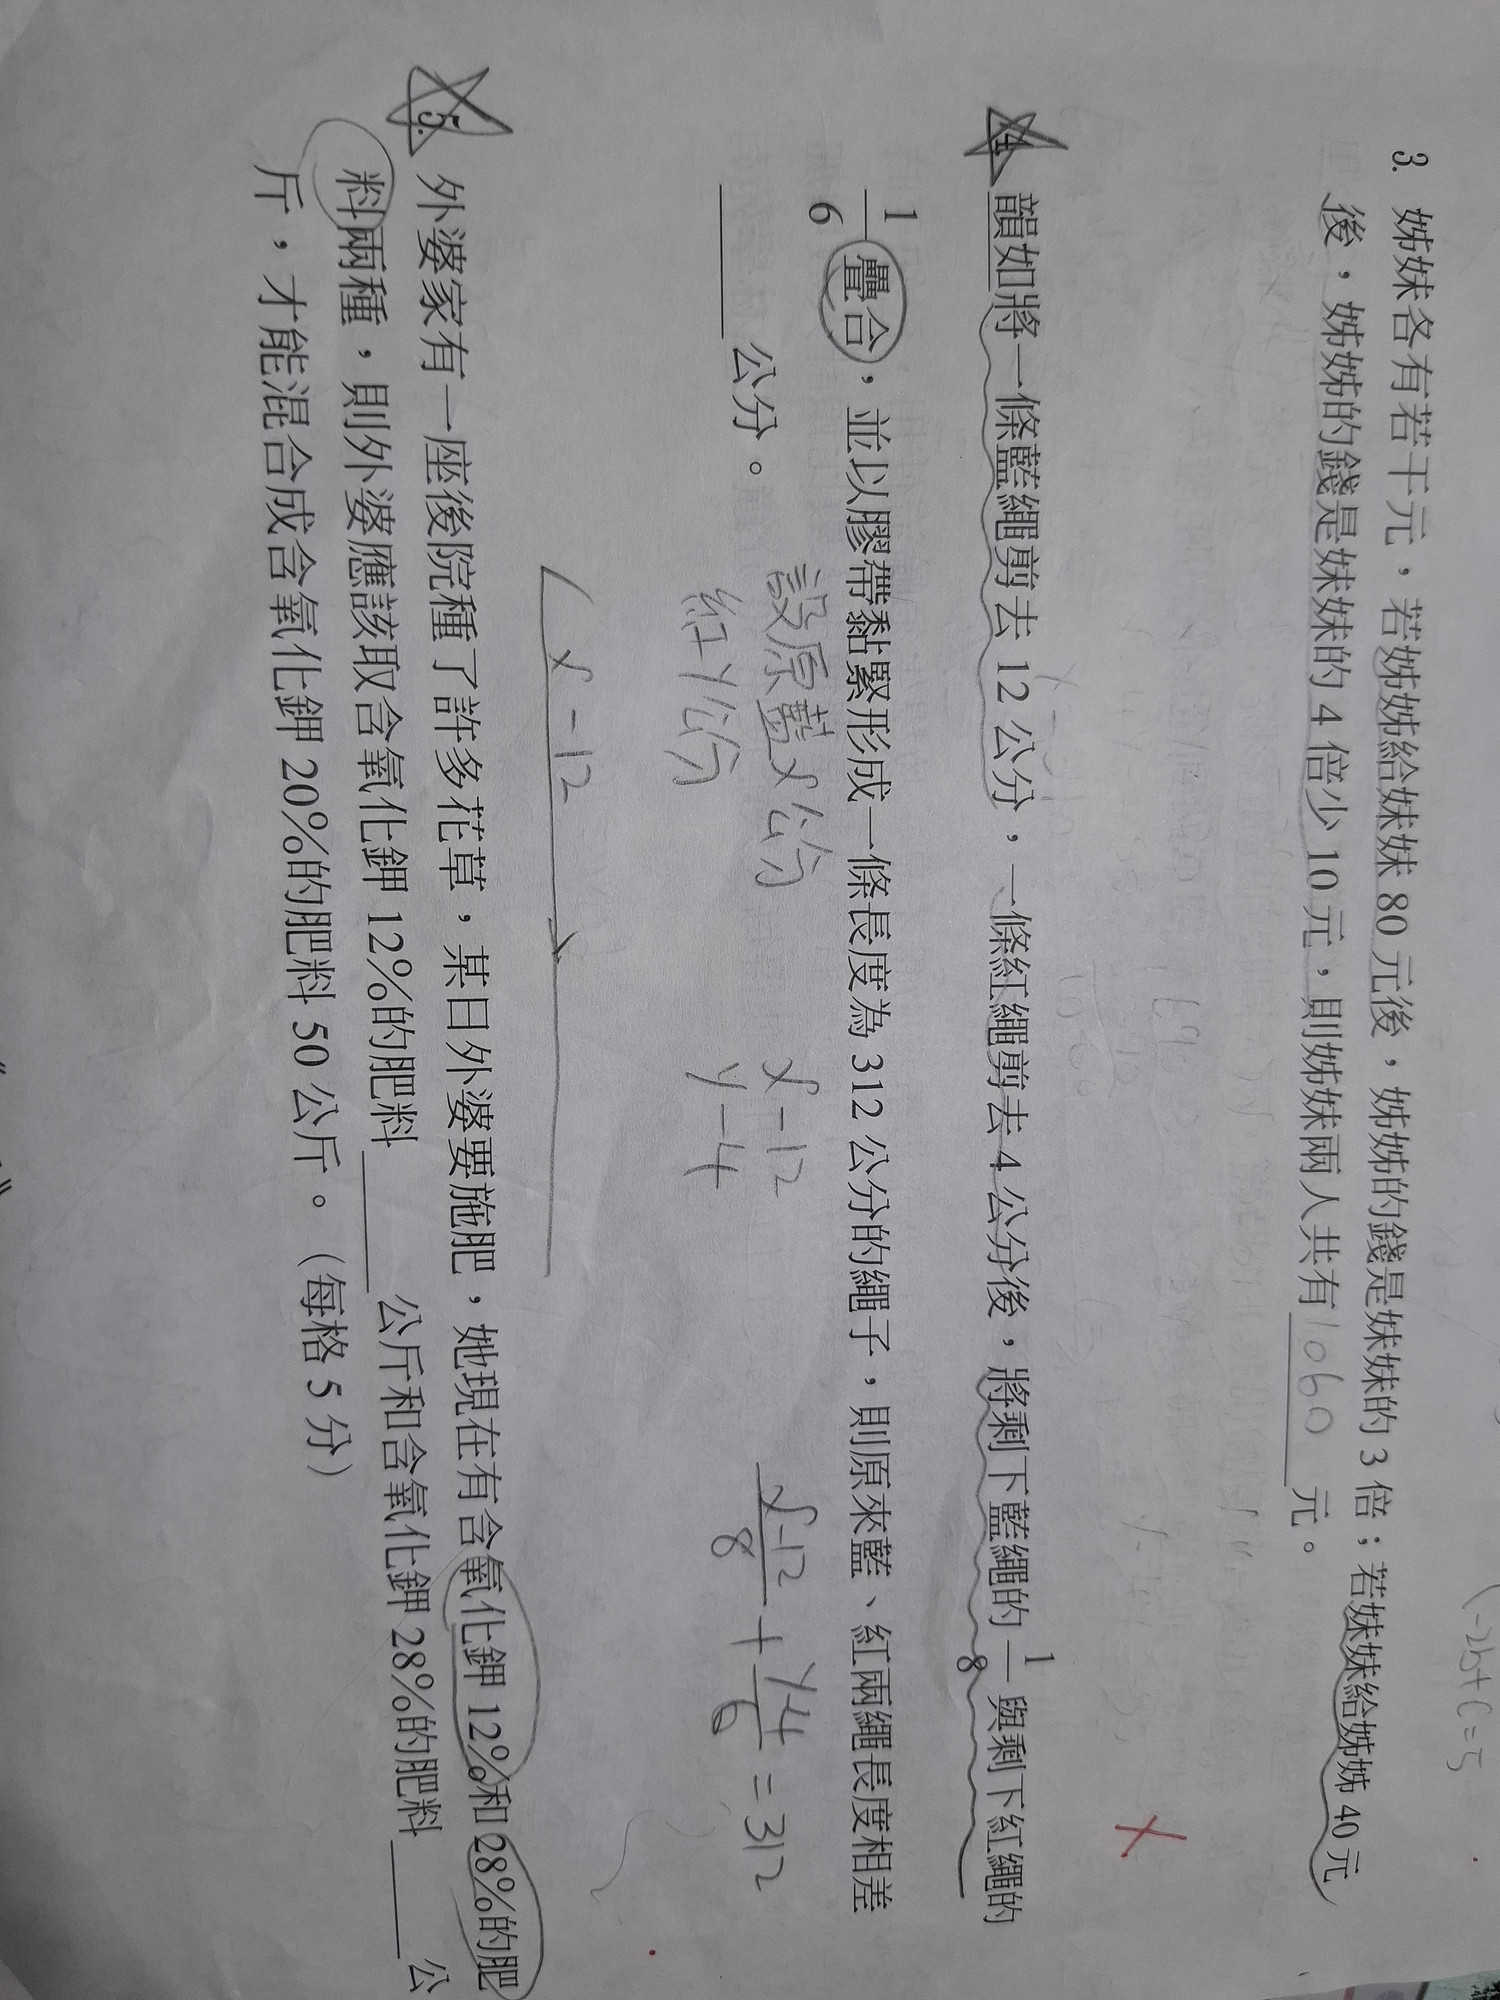 (-2b+c=5
3. 姊妹各有若干元，若姊姊給妹妹 80 元後，姊姊的錢是妹妹的 3 倍；若妹妹給姊姊 40 元
後，姊姊的錢是妹妹的 4 倍少 10 元，則姊妹兩人共有 1060 元。
4. 韻如將一條藍繩剪去 12 公分，一條紅繩剪去 4 公分後，將剩下藍繩的 1/8 與剩下紅繩的
1/6 疊合，並以膠帶黏緊形成一條長度為 312 公分的繩子，則原來藍、紅兩繩長度相差
______ 公分。
設原藍x公分 x-12 x-12/8 + y-4/6 = 312
紅y公分 y-4
x-12
5. 外婆家有一座後院種了許多花草，某日外婆要施肥，她現在有含氧化鉀 12%和 28%的肥
料兩種，則外婆應該取含氧化鉀 12%的肥料 ______ 公斤和含氧化鉀 28%的肥料 ______ 公
斤，才能混合成含氧化鉀 20%的肥料 50 公斤。（每格 5 分）